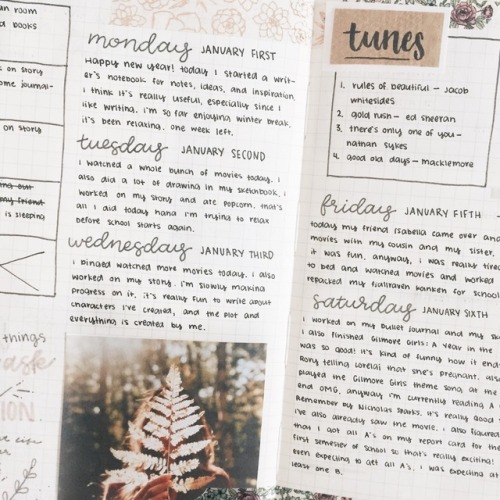 an room
d books
k on story
ome journal-
on story
ing our
my friend
is sleeping
things
monday JANUARY FIRST
Happy new year! today I started a writ-
er's notebook for notes, ideas, and inspiration.
I think it's really useful, especially since I
like writing. I'm so far enjoying winter break,
it's been relaxing. one week left.
tuesday JANUARY SECOND
I watched a whole bunch of movies today. I
also did a lot of drawing in my sketchbook. I
worked on my story and ate popcorn. that's
all I did today haha I'm trying to relax
before school starts again.
wednesday JANUARY THIRD
I binged watched more movies today. I also
worked on my story. I'm slowly making
progress on it. it's really fun to write about
characters I've created, and the plot and
everything is created by me.
tunes
1. rules of beautiful - jacob
whitesides
2. gold rush - ed sheeran
3. there's only one of you -
nathan sykes
4. good old days - macklemore
friday JANUARY FIFTH
today my friend Isabella came over and
movies with my cousin and my sister.
it was fun. anyway, I was really tired
to bed and watched movies and worked
repacked my fjallraven kanken for school
saturday JANUARY SIXTH
I worked on my bullet journal and my sk
I also finished Gilmore Girls: A Year in the
was so good! it's kind of funny how it end
Rory telling Lorelai that she's pregnant. also
played the Gilmore Girls theme song at the
end OMG. anyway I'm currently reading A
Remember by Nicholas Sparks. it's really good
I've also already saw the movie. I also figured
that I got all A's on my report card for the
first semester of school so that's really exciting!
even expecting to get all A's. I was expecting at
least one B.